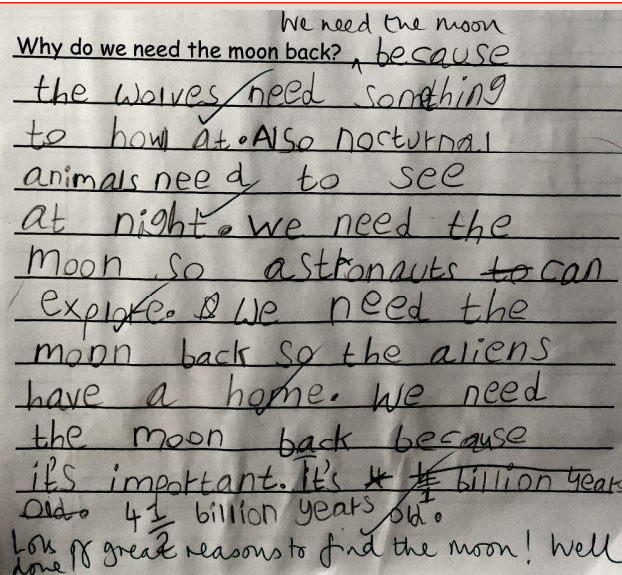 We need the moon
Why do we need the moon back? ^ because
the wolves need something
to howl at. Also nocturnal
animals need to see
at night. We need the
moon so astronauts to can
explore. We need the
moon back so the aliens
have a home. We need
the moon back because
it's important. It's billion years
old. 4 1/2 billion years old.
Lots of great reasons to find the moon! Well
done